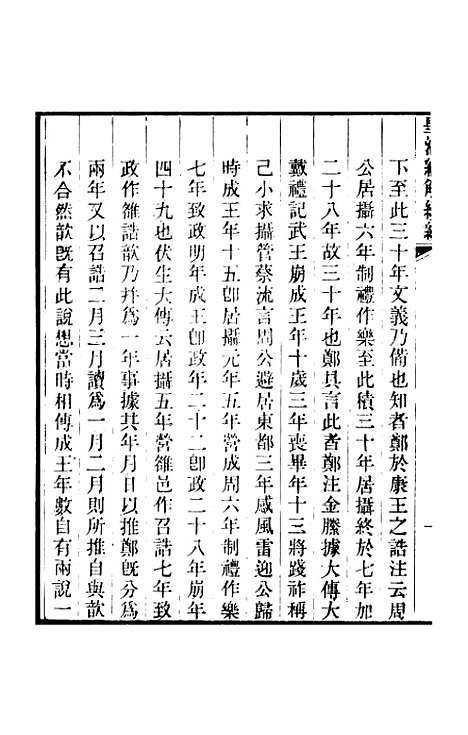 皇清經解續編
下至此三十年文義乃備也知者鄭於康王之誥注云周
公居攝六年制禮作樂至此積三十年居攝終於七年加
二十八年故三十年也鄭具言此者鄭注金縢據大傳大
戴禮記武王崩成王年十歲三年喪畢年十三將踐祚稱
己小求攝管蔡流言周公避居東都三年感風雷迎公歸
時成王年十五卽居攝元年五年營成周六年制禮作樂
七年致政明年成王卽政年二十二卽政二十八年崩年
四十九也伏生大傳云居攝五年營雒邑作召誥七年致
政作雒誥歆乃幷爲一年事據其年月日以推鄭旣分爲
兩年又以召誥二月三月讀爲一月二月則所推自與歆
不合然歆旣有此說想當時相傳成王年數自有兩說一